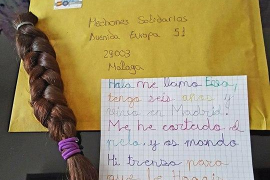 Mechones Solidarios
Avenida Europa 51
29003
Málaga
Hola me llamo
tengo seis años y
vivo en Madrid!
Me he cortado el
pelo y os mando
Mi trenza para
que